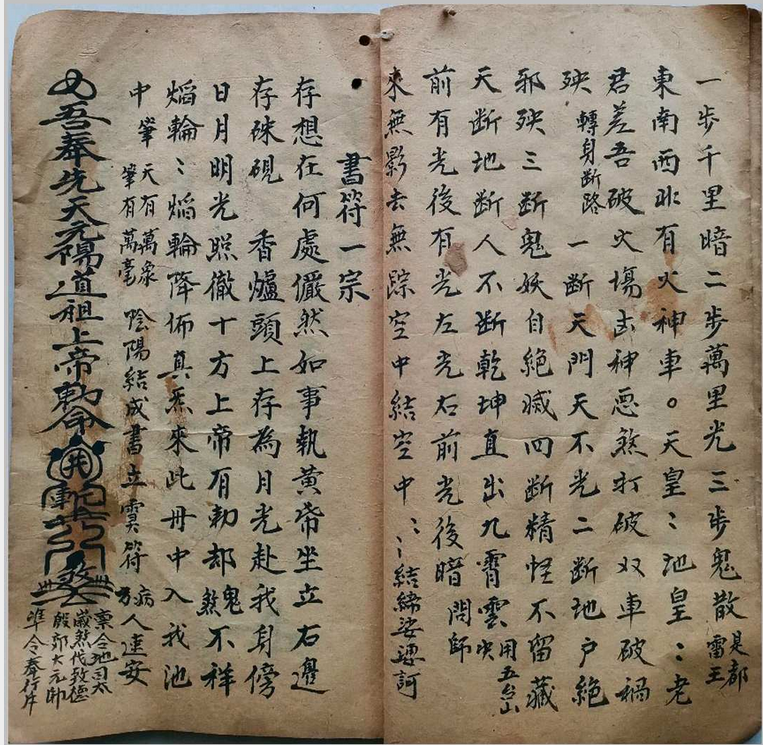 一步千里暗二步萬里光三步鬼散 是都雷王
東南西北有火神車。天皇〻地皇〻老
君差吾破火塲凶神惡煞打破双車破禍
殃 轉身断路 一断天門天不光二断地户絕
邪殃三断鬼妖自絕滅四断精怪不留藏
天断地断人不断乾坤直出九霄雲 用五台山决
前有光後有光左光右前光後暗 問師
來無影去無踪空中結空中〻〻結締娑婆訶
書符一宗
存想在何處儼然如事執黄帝坐立右邊
存硃硯 香爐頭上存為月光赴我身傍
日月明光照徹十方上帝有勅却鬼煞不祥
熖輪〻熖輪降佈真炁來此丹中入我池
中筆 天有萬象 筆有萬毫 陰陽結成書立灵符 病人速安
吾奉先天元陽道祖上帝勅令 煞
稟令地司太
歲煞伐致德
殷郊大元帥
準令奉行